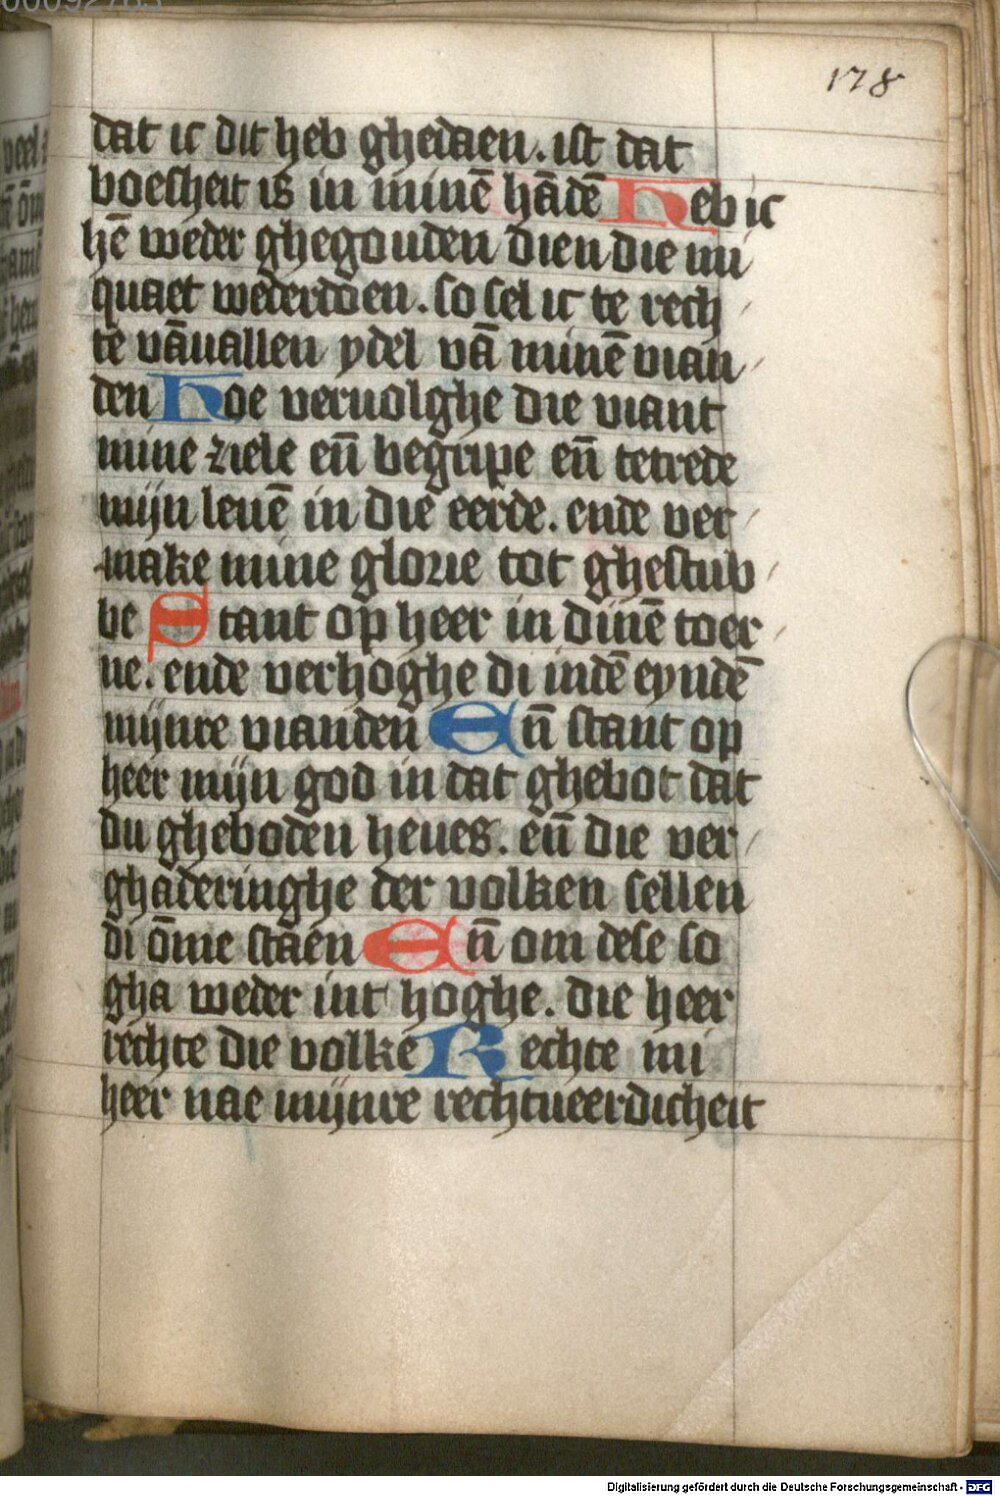 00092783
178
dat ic dit heb ghedaen. ist dat
boesheit is in minē hādē Heb ic
hē weder ghegouden dien die mi
quaet wederdoen. so sel ic te rech
te vāuallen ydel vā minē vian
den Hoe veruolghe die viant
mine ziele eñ begripe eñ tetrede
mijn leuē in die eerde. ende ver
make mine glorie tot ghestub
be Stant op heer in dinē toer
ne. ende verhoghe di indē eyndē
mijnre vianden Eñ stant op
heer mijn god in dat ghebot dat
du gheboden heues. eñ die ver
ghaderinghe der volken sellen
di ōme staen Eñ om dese so
gha weder int hoghe. die heer
rechte die volke Rechte mi
heer nae mijnre rechtueerdicheit
Digitalisierung gefördert durch die Deutsche Forschungsgemeinschaft - DFG